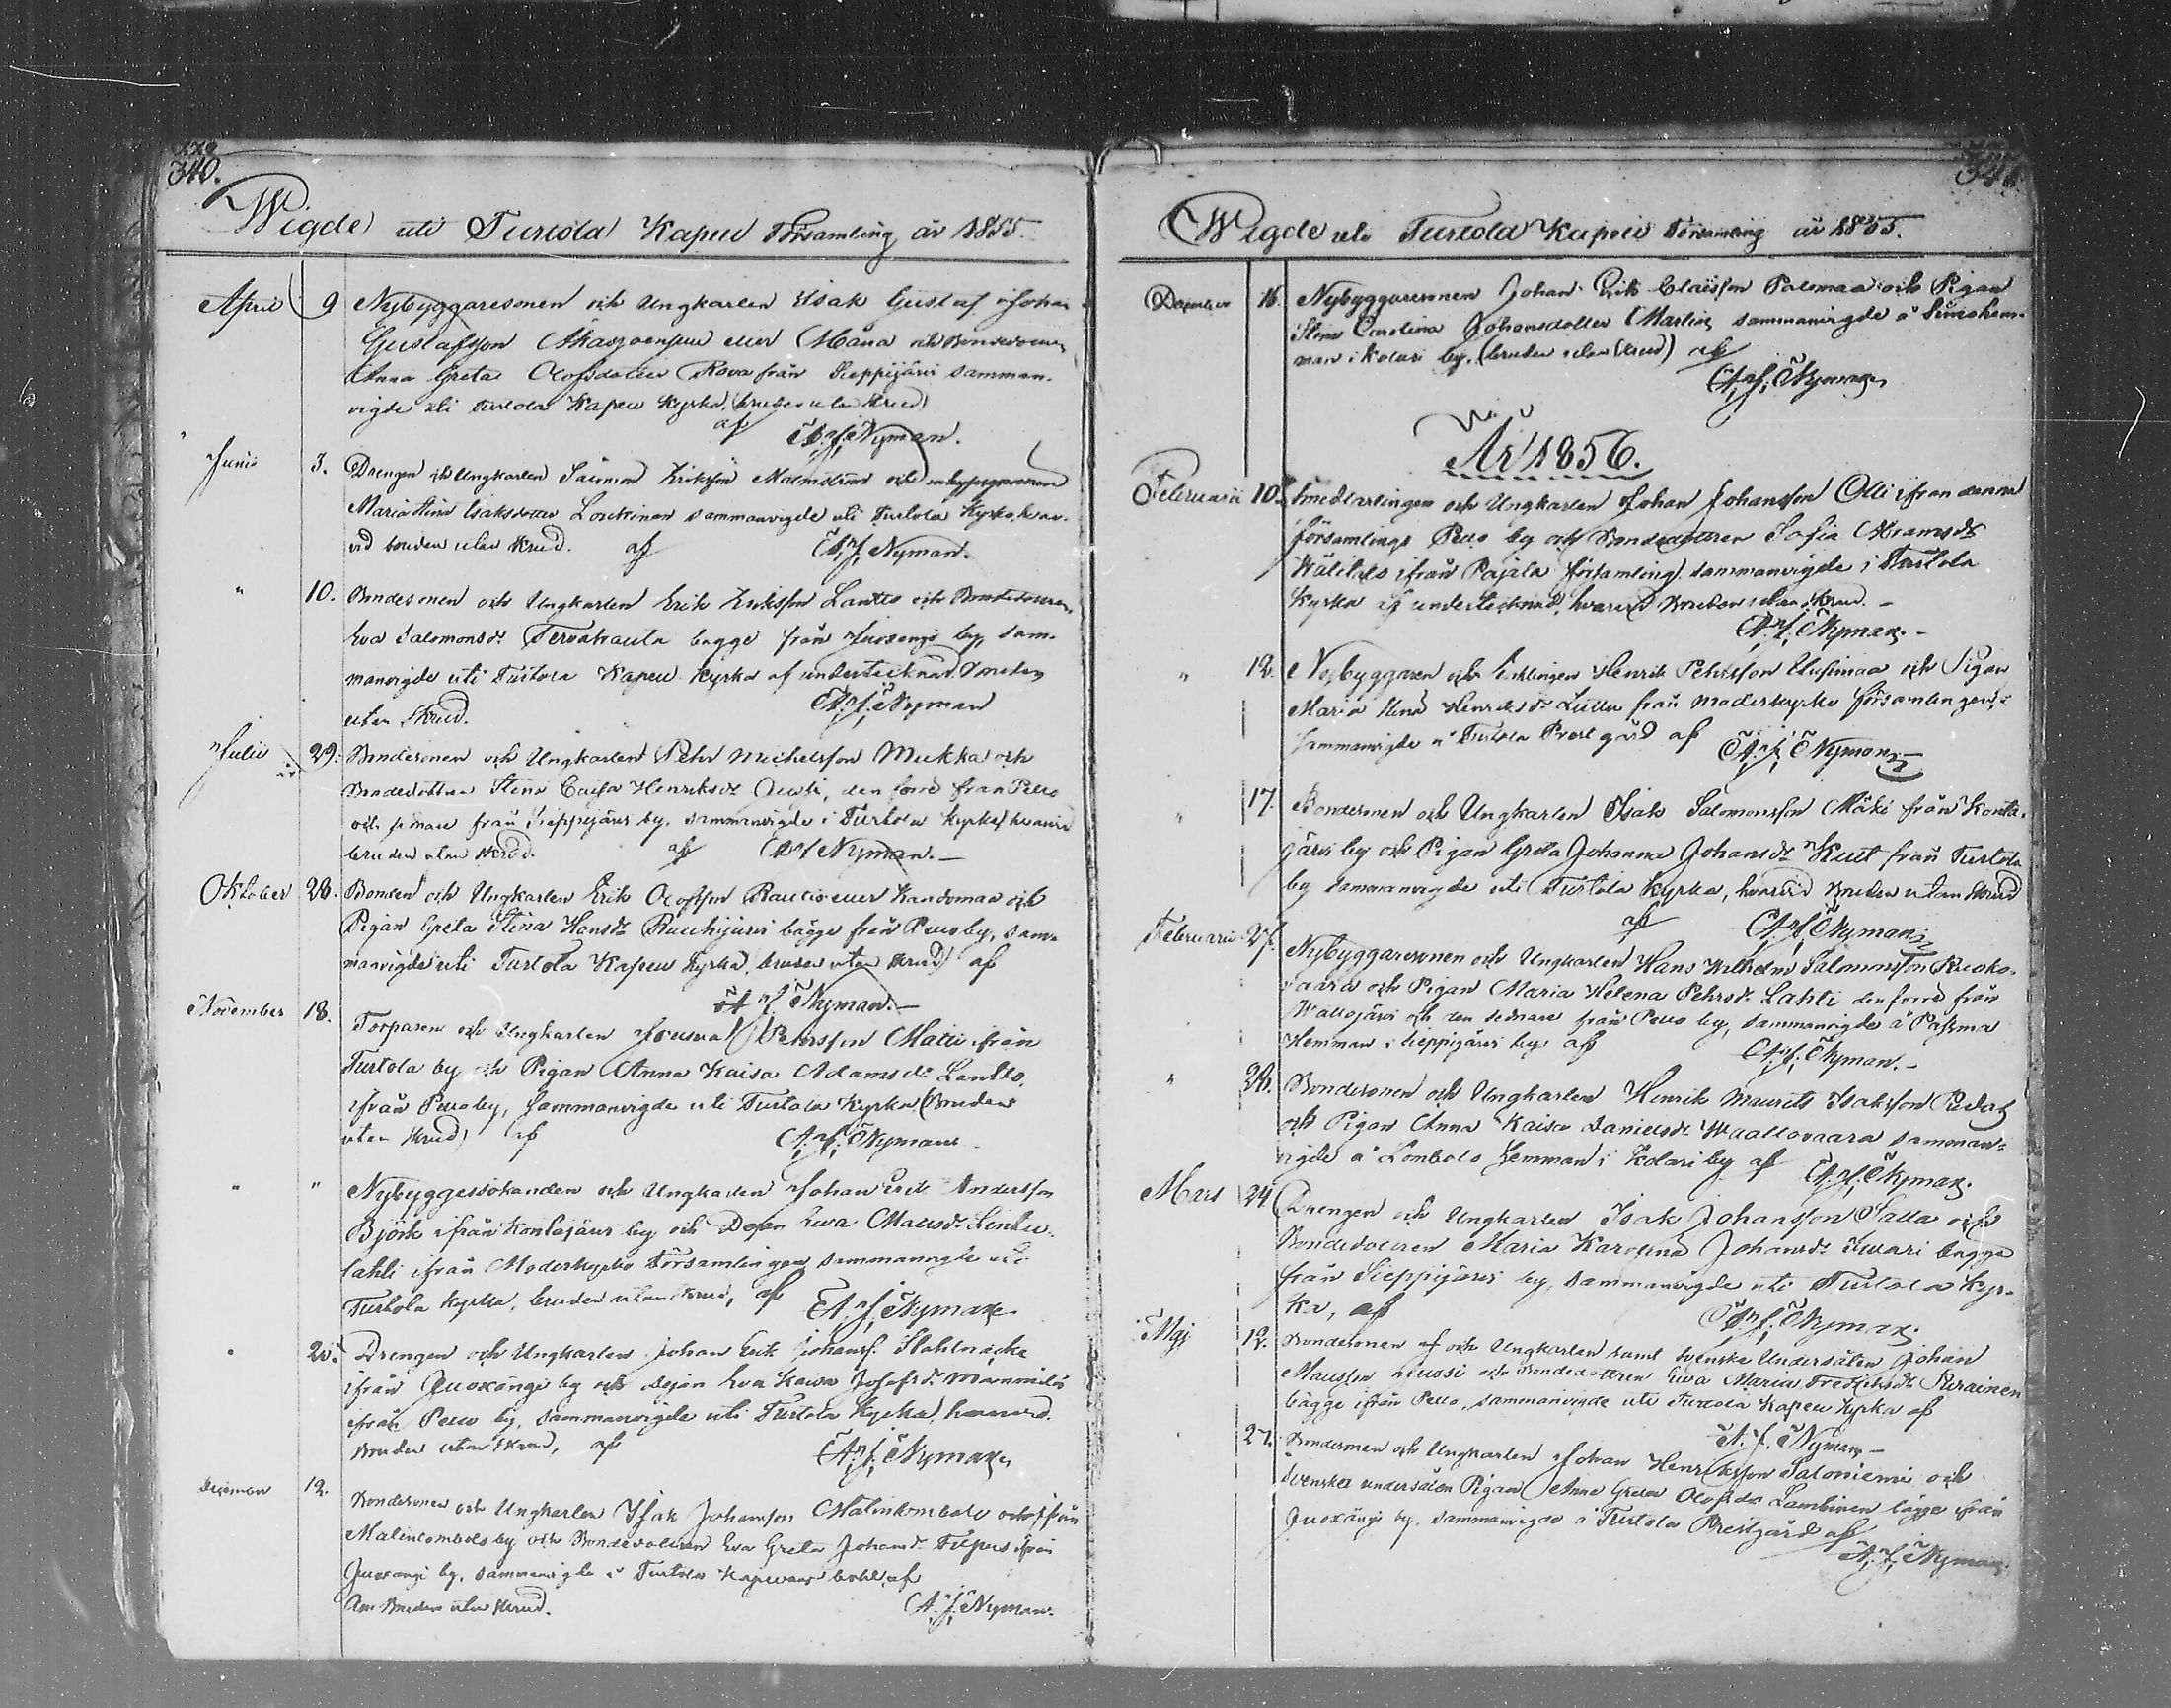 340.
Wigde uti Turtola Kapell Församling år 1855.
April 9 Nybyggaresonen och Ungkarlen Isak Gustaf Johan
Gustafsson eller Mäna och Bondedottren
Anna Greta Olofsdotter Rova från Sieppijärvi samman-
vigde uti Turtola Kapell Kyrka, (bruden utan skrud)
af A. J. Nyman.
Junii 3. Drengen och Ungkarlen Salomon Eriksson Malmström och
Maria Stina Isaksdotter Loukinen sammanvigde uti Turtola Kyrka, hvar-
vid bruden utan skrud. af A. J. Nyman.
" 10. Bondesonen och Ungkarlen Erik Eriksson Lantto och Bondedottren
Eva Salomonsdr Tervahauta bägge från Juoxengi by, sam-
manvigde uti Turtola Kapell Kyrka af undertecknad. Bruden
utan skrud. A. J. Nyman
Julii 29. Bondesonen och Ungkarlen Pehr Michelsson Mukka och
Bondedottren Stina Caisa Henriksdr, den förre från Pello
och senare från Sieppijärvi by, sammanvigde i Turtola Kyrka, hvarvid
bruden utan skrud. af A. J. Nyman.
Oktober 28. Bonden och Ungkarlen Erik Olofsson Rautio eller Kandomaa och
Pigan Greta Stina Hansdr Ruuhijärvi bägge från Pello by, sam-
manvigde uti Turtola Kapell Kyrka, bruden utan skrud) af
A. J. Nyman.
November 18. Torparen och Ungkarlen Josua Pehrsson Matti ifrån
Turtola by och Pigan Anna Kaisa Adamsdr Lantto,
ifrån Pello by, sammanvigde uti Turtola Kyrka (Bruden
utan skrud) af A. J. Nyman
" " Nybyggessökanden och Ungkarlen Johan Erik Andersson
Björk ifrån Kontajärvi by och Dejan Eva Matsdr Linku-
lahti ifrån Moderkyrko Församlingen sammanvigde uti
Turtola kyrka, bruden utan skrud, af A. J. Nyman
" 25. Drengen och Ungkarlen Johan Erik Johanss. Stålnacke
ifrån Juoxängi by och dejan Eva Kaisa Josefsdr Mannila
ifrån Pello by, sammanvigde uti Turtola Kyrka, hvarvid
Bruden utan skrud, af A. J. Nyman
December 12. Bondesonen och Ungkarlen Isak Johansson ifrån
by och Bondedottren Eva Greta Johansdr Filpus ifrån
Juoxengi by, sammanvigde i Turtola af
Bruden utan skrud. A. J. Nyman.
Wigde uti Turtola Kapell Församling år 1855.
December 16. Nybyggaresonen Johan Erik Claësson Palomaa och Pigan
Stina Carolina Johansdotter Martin sammanvigde å hem-
man i Kolari by. (bruden utan skrud) af
A. J. Nyman
År 1856.
Februarii 10. Inheslingen och Ungkarlen Johan Johansson Olli ifrån denna
församlings Pello by och Bondedottren Sofia Abramsdr
Wälitalo ifrån Pajala församling sammanvigde i Turtola
Kyrka af undertecknad, hvarvid Bruden utan skrud.
A. J. Nyman.
" 12. Nybyggaren och Enklingen Henrik Pehrsson Uusimaa och Pigan
Maria Stina Henriksdr från moderkyrko församlingen,
sammanvigde å Turtola Prestgård af A. J. Nyman
" 17. Bondesonen och Ungkarlen Isak Salomonsson Mäki från Konta-
järvi by och Pigan Greta Johanna Johansdr från Turtola
by sammanvigde uti Turtola Kyrka, hvarvid Bruden utan skrud
af A. J. Nyman
Februarii 27. Nybyggaresonen och Ungkarlen Hans Wilhelm Salomonsson Ruoko-
vaara och Pigan Maria Helena Pehrsdr Lahti den förre från
Wallojärvi och den sednare från Pello by, sammanvigde å
Hemman i Sieppijärvi by af A. J. Nyman.
" 28. Bondesonen och Ungkarlen Henrik Maurits Isaksson Pudas
och Pigan Anna Kaisa Danielsdr Waattovaara samman-
vigde å Lombolo hemman i Kolari by af A. J. Nyman.
Mars 24. Drengen och Ungkarlen Isak Johansson Salla och
Bondedottren Maria Karolina Johansdr bägge
från Sieppijärvi by, sammanvigde uti Turtola Kyr-
ka, af A. J. Nyman
Maj 12. Bondesonen och Ungkarlen samt Svenske Undersåten Johan
Matsson Niussi och Bondedottren Eva Maria Fredriksdr
bägge ifrån Pello, sammanvigde uti Turtola Kapell Kyrka af
A. J. Nyman
27. Bondesonen och Ungkarlen Johan Henriksson Saloniemi och
Svenska undersåten Pigan Anna Greta Olofsdr Lambinen bägge ifrån
Juoxängi by, sammanvigde å Turtola Prestgård af
A. J. Nyman.